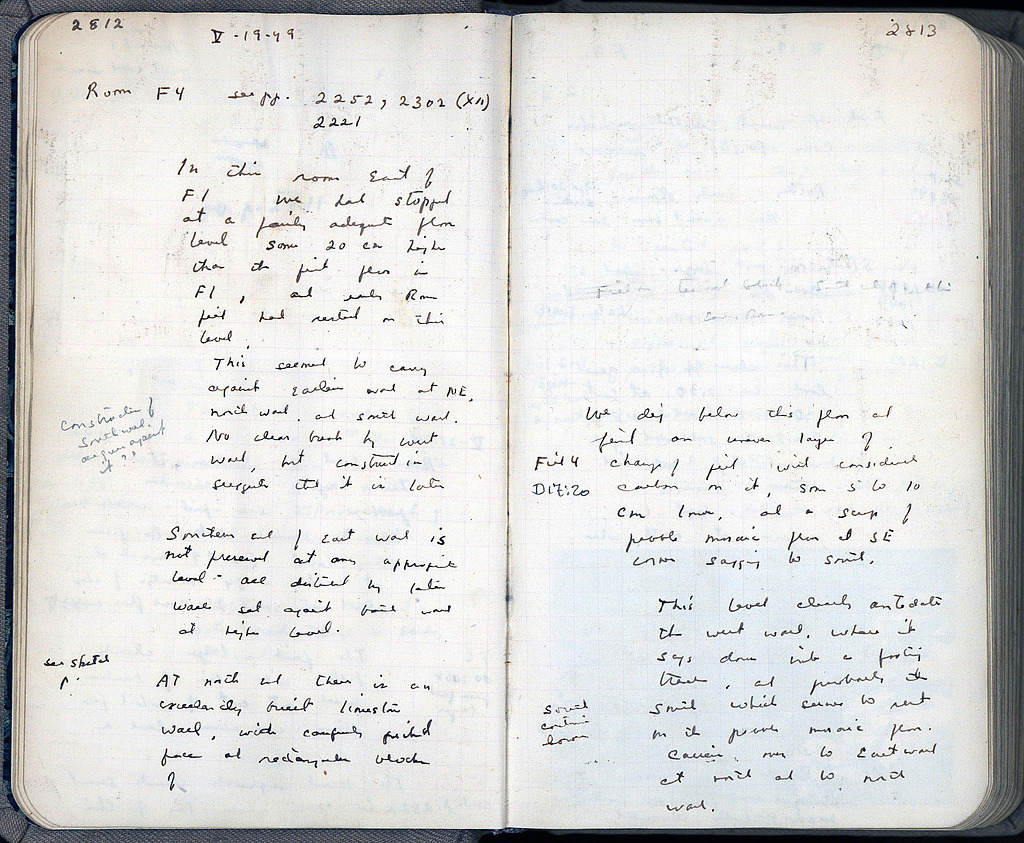 2812
V-19-49
Room F4 see pp. 2252, 2302 (XII)
2221
In this room East of
F1 we had stopped
at a fairly adequate floor
level some 20 cm higher
than the first floor in
F1, and early Roman
fill had rested on this
level.
This seemed to carry
against earlier wall at NE,
north wall, and south wall.
No clear break by west
wall, but construction
suggests that it is later
Construction of
South wall.
against
it??
Southern end of East wall is
not preserved at any appropriate
level - all disturbed by later
walls set against wall
at higher level.
see sketch
p.
At north end there is an
excellently built limestone
wall, with carefully picked
face and rectangular blocks
of
2813
We dig below this floor and
find an uneven layer of
Fill 4 change of fill with considerable
D17:20 carbon on it, some 5 to 10
cm lower, and a scrap of
pebble mosaic floor at SE
corner sagging to south.
This level clearly antedates
the west wall, where it
sags down into a footing
trench, and probably the
south which seems to rest
on its pebble mosaic floor.
south
certain
lower
Carries over to East wall
at south and to north
wall.